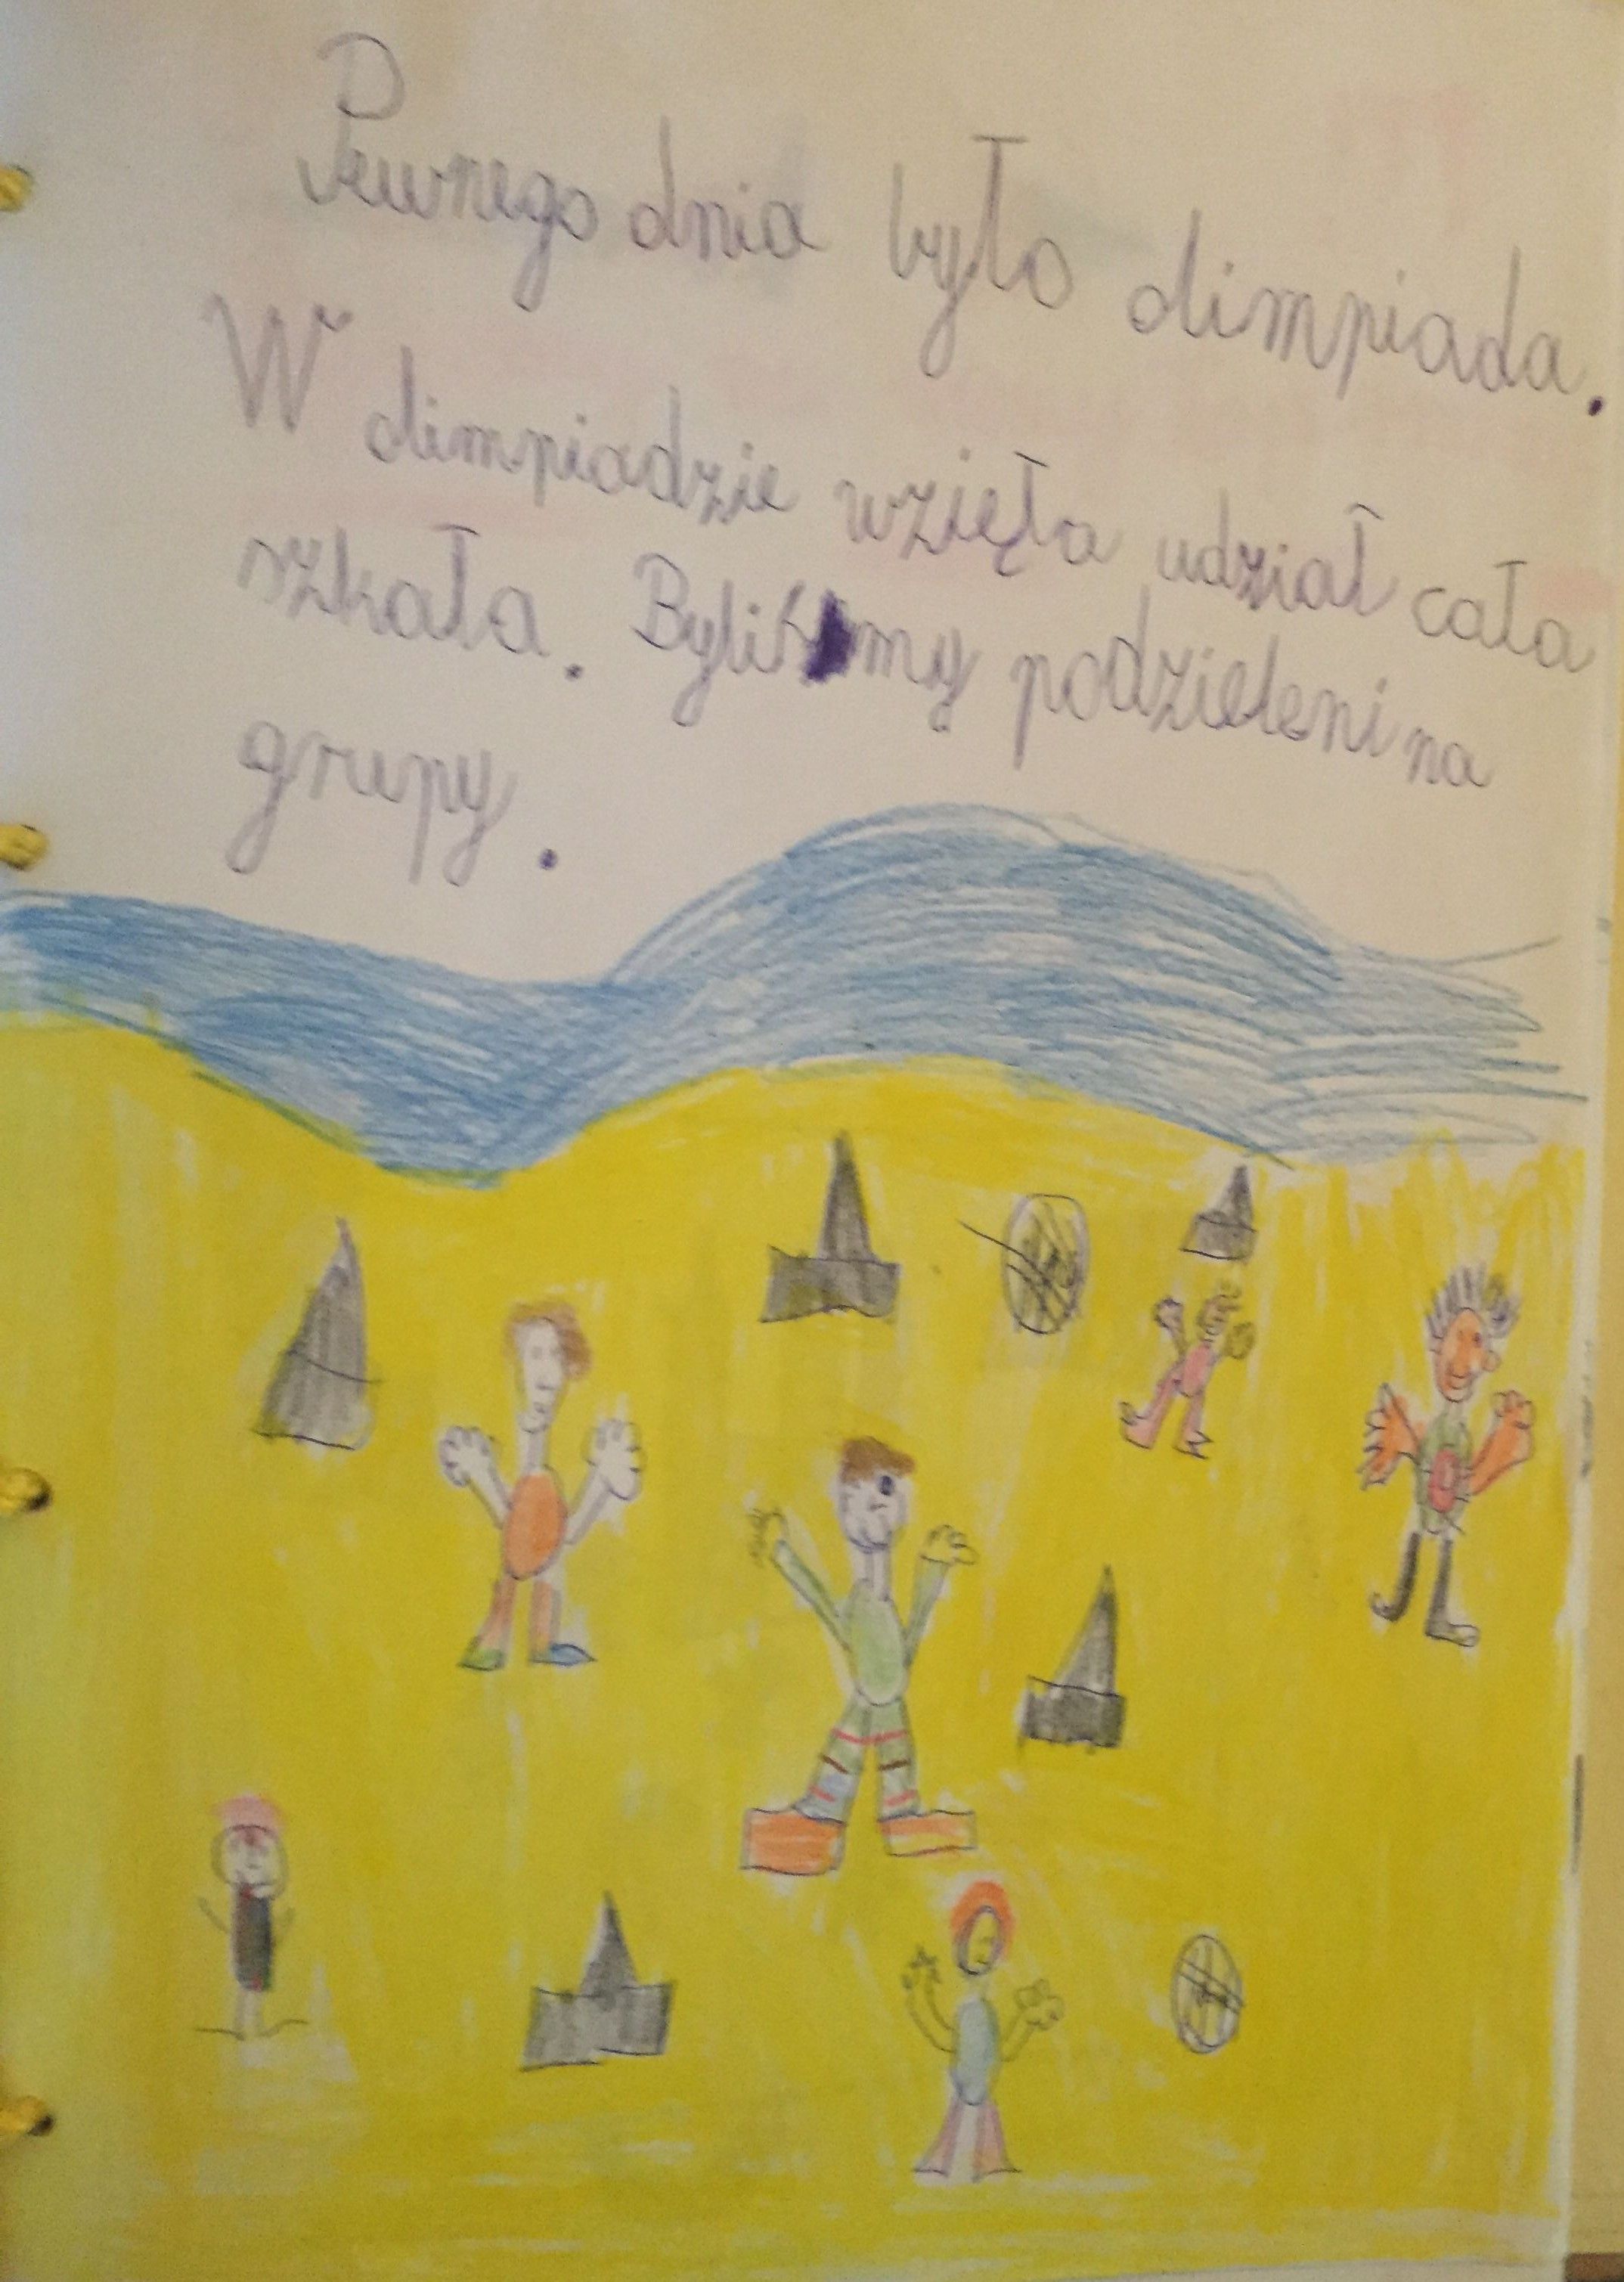 Pewnego dnia była olimpiada.
W olimpiadzie wzięła udział cała
szkoła. Byliśmy podzieleni na
grupy.